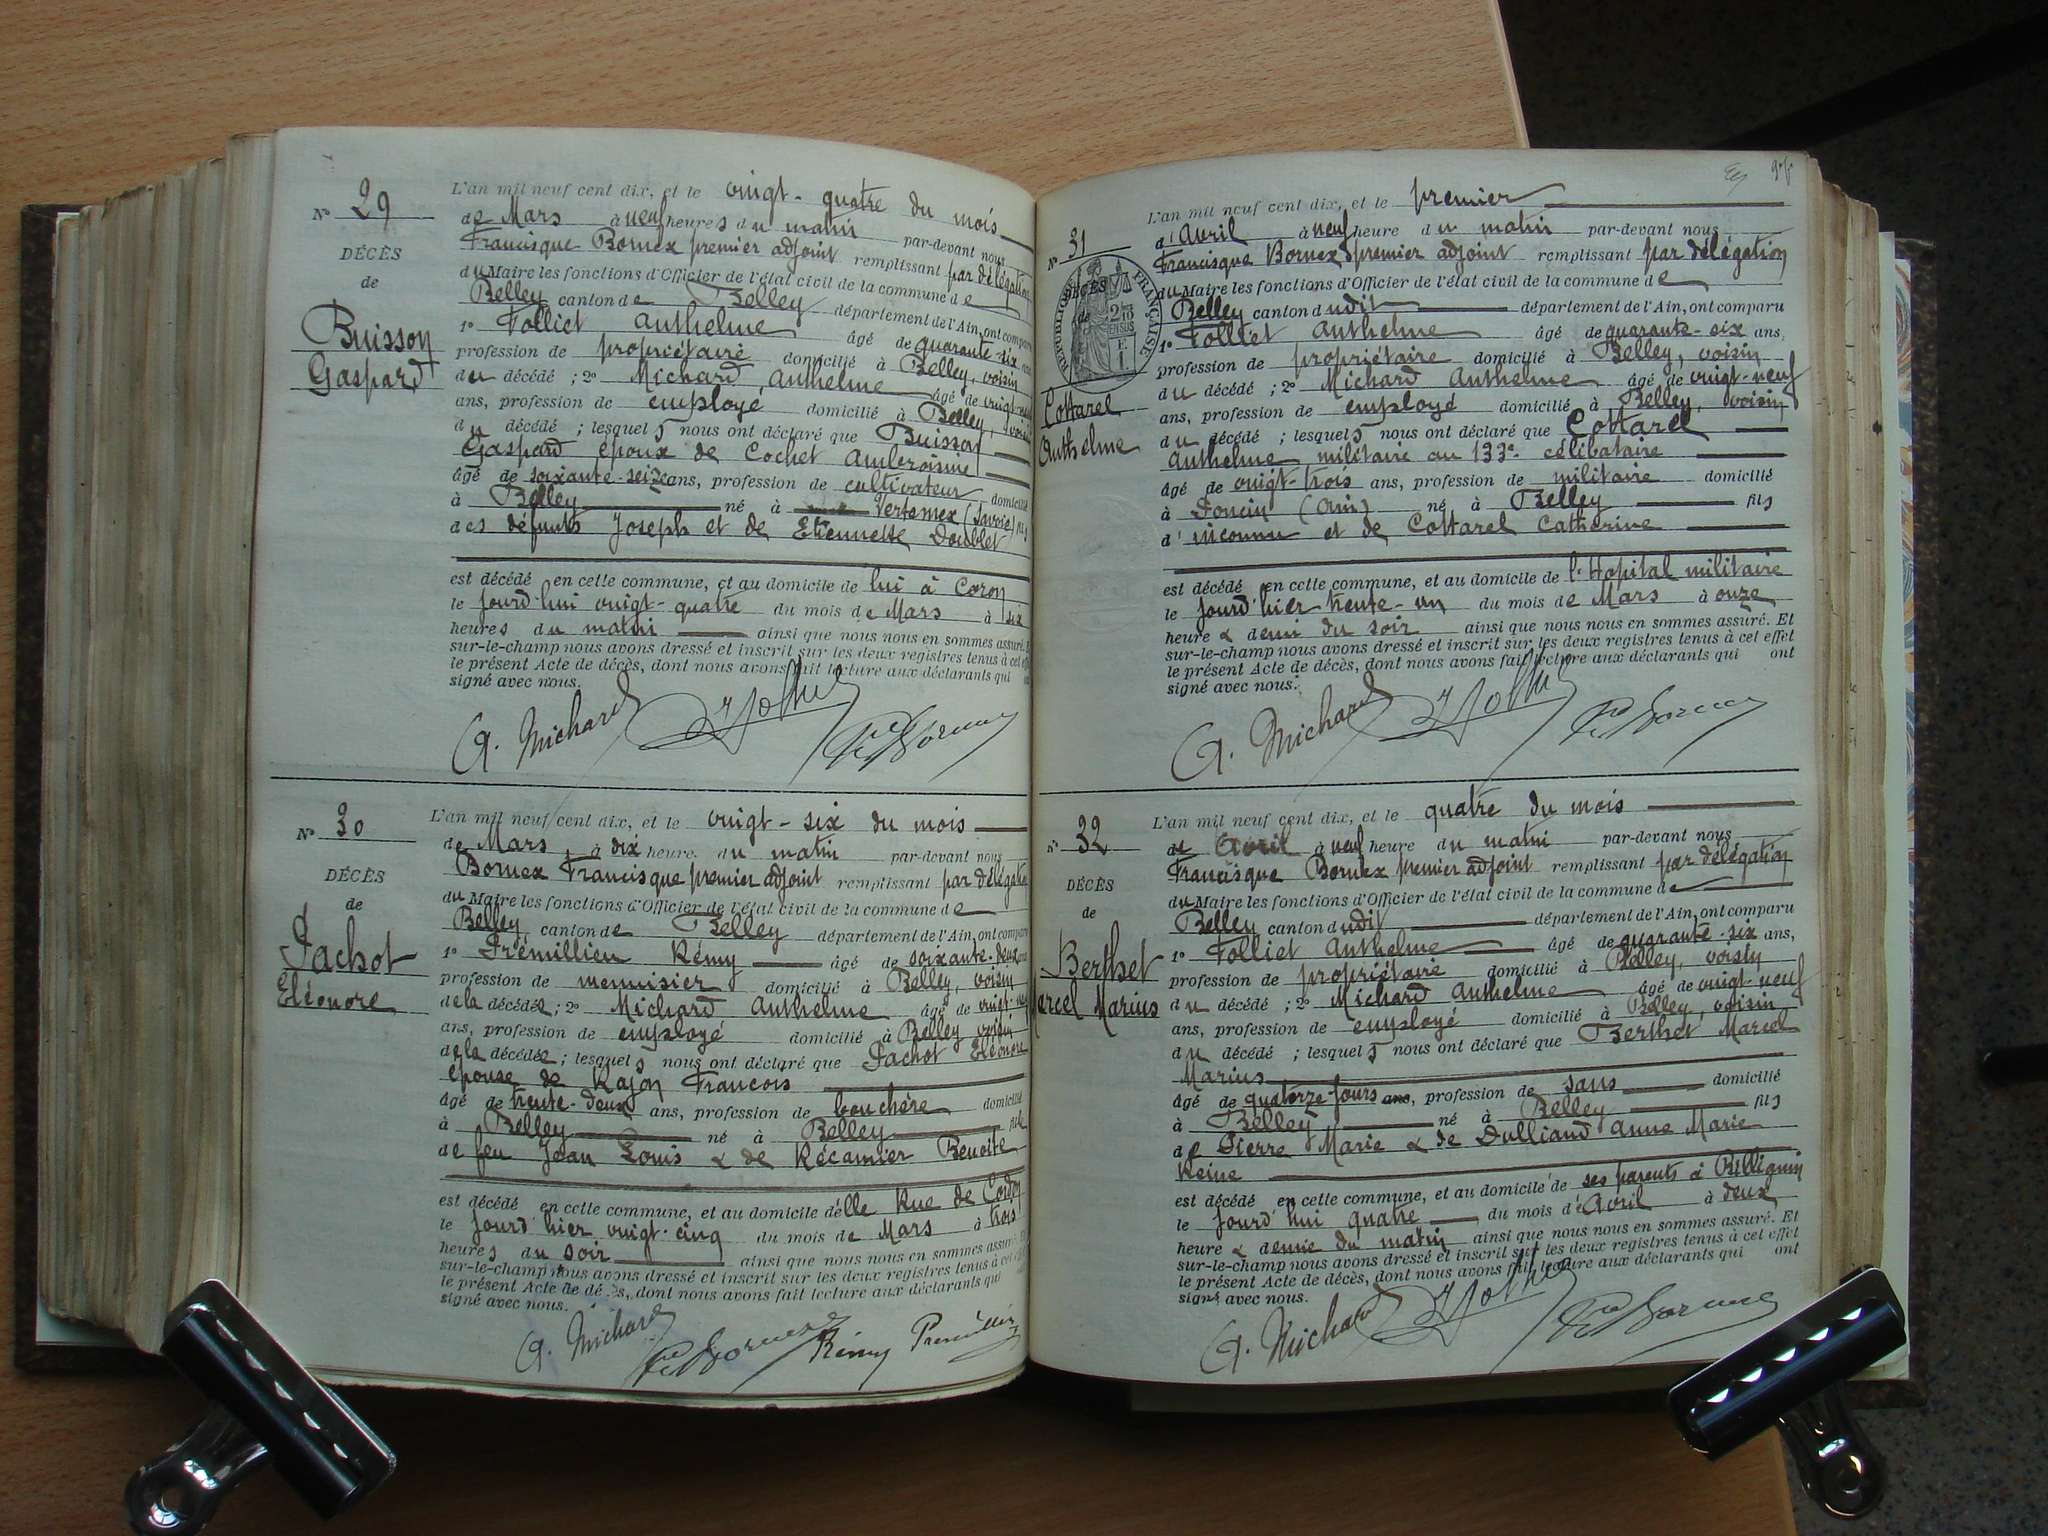 L'an mil neuf cent dix, et le vingt-quatre du mois
N° 29 de Mars à neuf heures du matin par-devant nous
Francisque Bornex premier adjoint remplissant par délégation
DÉCÈS
de
du Maire les fonctions d'Officier de l'état civil de la commune de
Belley canton de Belley département de l'Ain, ont comparu
Buisson
Gaspard
1° Folliet Anthelme âgé de quarante-six ans
profession de propriétaire domicilié à Belley, voisin
du décédé ; 2° Michard Anthelme âgé de vingt-neuf
ans, profession de employé domicilié à Belley, voisin
du décédé ; lesquels nous ont déclaré que Buisson
Gaspard époux de Cochet Ambroisine
âgé de soixante-seize ans, profession de cultivateur domicilié
à Belley né à Vertemex (Savoie) fils
des défunts Joseph et de Etiennette Doublet
est décédé en cette commune, et au domicile de lui à Coron
le jourd'hui vingt-quatre du mois de Mars à six
heures du matin ainsi que nous nous en sommes assuré. Et
sur-le-champ nous avons dressé et inscrit sur les deux registres tenus à cet effet
le présent Acte de décès, dont nous avons fait lecture aux déclarants qui ont
signé avec nous.
A. Michard
L'an mil neuf cent dix, et le vingt-six du mois
N° 30 de Mars, à dix heures du matin par-devant nous
Bornex Francisque premier adjoint remplissant par délégation
DÉCÈS
de
du Maire les fonctions d'Officier de l'état civil de la commune de
Belley, canton de Belley département de l'Ain, ont comparu
Pachot
Eléonore
1° Prémillieu Rémy âgé de soixante-deux ans
profession de menuisier domicilié à Belley, voisin
de la décédée ; 2° Michard Anthelme âgé de vingt-neuf
ans, profession de employé domicilié à Belley voisin
de la décédée ; lesquels nous ont déclaré que Pachot Eléonore
épouse de Rajon François
âgé de trente-deux ans, profession de bouchère domicilié
à Belley né à Belley fille
de feu Jean Louis & de Récamier Benoite
est décédé en cette commune, et au domicile d'elle Rue de Cordon
le jourd'hier vingt-cinq du mois de Mars à trois
heures du soir ainsi que nous nous en sommes assuré. Et
sur-le-champ nous avons dressé et inscrit sur les deux registres tenus à cet effet
le présent Acte de décès, dont nous avons fait lecture aux déclarants qui
signé avec nous.
A. Michard Rémy Premillieu
L'an mil neuf cent dix, et le premier
N° 31 d'Avril à neuf heure du matin par-devant nous
Francisque Bornex premier adjoint remplissant par délégation
DÉCÈS
de
RÉPUBLIQUE FRANÇAISE
du Maire les fonctions d'Officier de l'état civil de la commune de
Belley canton dudit département de l'Ain, ont comparu
1° Folliet Anthelme âgé de quarante-six ans,
profession de propriétaire domicilié à Belley, voisin
du décédé ; 2° Michard Anthelme âgé de vingt-neuf
Cottarel
Anthelme
ans, profession de employé domicilié à Belley, voisin
du décédé ; lesquels nous ont déclaré que Cottarel
Anthelme militaire au 133e célibataire
âgé de vingt-trois ans, profession de militaire domicilié
à Doncin (Ain) né à Belley fils
d'inconnu et de Cottarel Catherine
est décédé en cette commune, et au domicile de l'Hopital militaire
le jourd'hier trente-un du mois de Mars à onze
heure & demi du soir ainsi que nous nous en sommes assuré. Et
sur-le-champ nous avons dressé et inscrit sur les deux registres tenus à cet effet
le présent Acte de décès, dont nous avons fait lecture aux déclarants qui ont
signé avec nous.
A. Michard
L'an mil neuf cent dix, et le quatre du mois
N° 32 de Avril à neuf heure du matin par-devant nous
Francisque Bornex premier adjoint remplissant par délégation
DÉCÈS
de
du Maire les fonctions d'Officier de l'état civil de la commune de
Belley canton dudit département de l'Ain, ont comparu
Berthet
Marcel Marius
1° Folliet Anthelme âgé de quarante-six ans,
profession de propriétaire domicilié à Belley, voisin
du décédé ; 2° Michard Anthelme âgé de vingt-neuf
ans, profession de employé domicilié à Belley, voisin
du décédé ; lesquels nous ont déclaré que Berthet Marcel
Marius
âgé de quatorze jours ans, profession de sans domicilié
à Belley né à Belley fils
de Pierre Marie & de Dulliand Anne Marie
Reine
est décédé en cette commune, et au domicile de ses parents à Billignin
le jourd'hui quatre du mois d'Avril à deux
heure & demie du matin ainsi que nous nous en sommes assuré. Et
sur-le-champ nous avons dressé et inscrit sur les deux registres tenus à cet effet
le présent Acte de décès, dont nous avons fait lecture aux déclarants qui ont
signé avec nous.
A. Michard